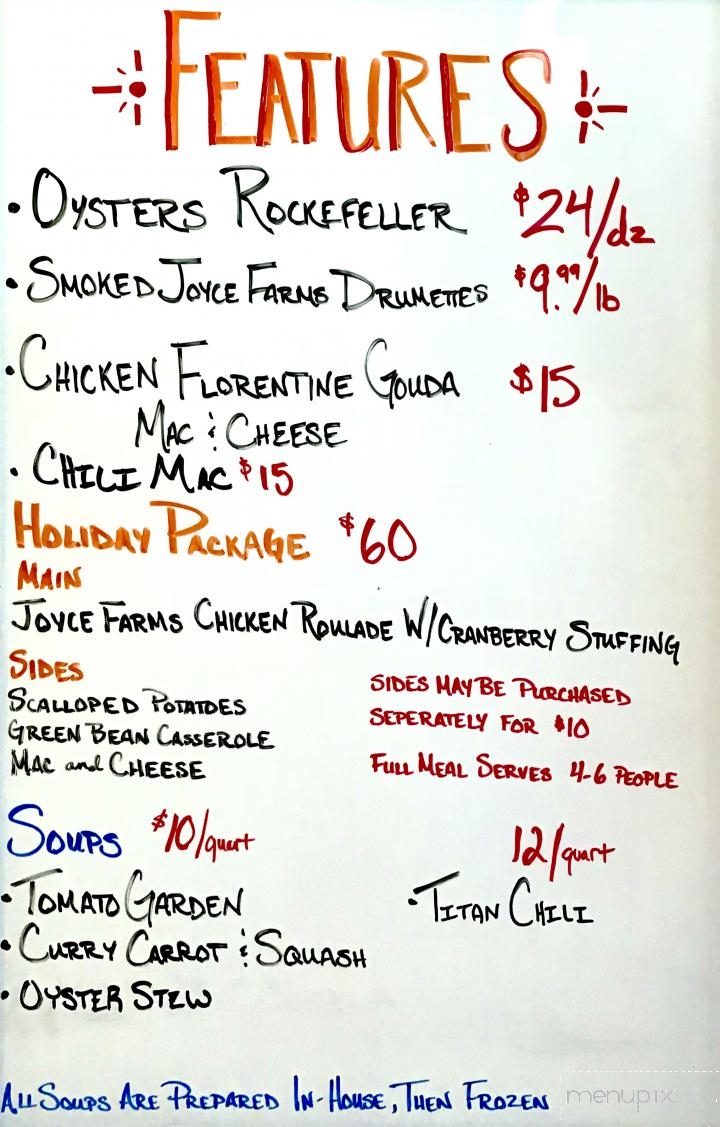 FEATURES
• OYSTERS ROCKEFELLER $24/dz
• SMOKED JOYCE FARMS DRUMETTES $9.99/lb
• CHICKEN FLORENTINE GOUDA $15
MAC & CHEESE
• CHILI MAC $15
HOLIDAY PACKAGE $60
MAIN
JOYCE FARMS CHICKEN ROULADE W/CRANBERRY STUFFING
SIDES
SCALLOPED POTATOES
GREEN BEAN CASSEROLE
MAC and CHEESE
SIDES MAY BE PURCHASED
SEPERATELY FOR $10
FULL MEAL SERVES 4-6 PEOPLE
SOUPS $10/quart
• TOMATO GARDEN
• CURRY CARROT & SQUASH
• OYSTER STEW
12/quart
• TITAN CHILI
ALL SOUPS ARE PREPARED IN-HOUSE, THEN FROZEN
menupix